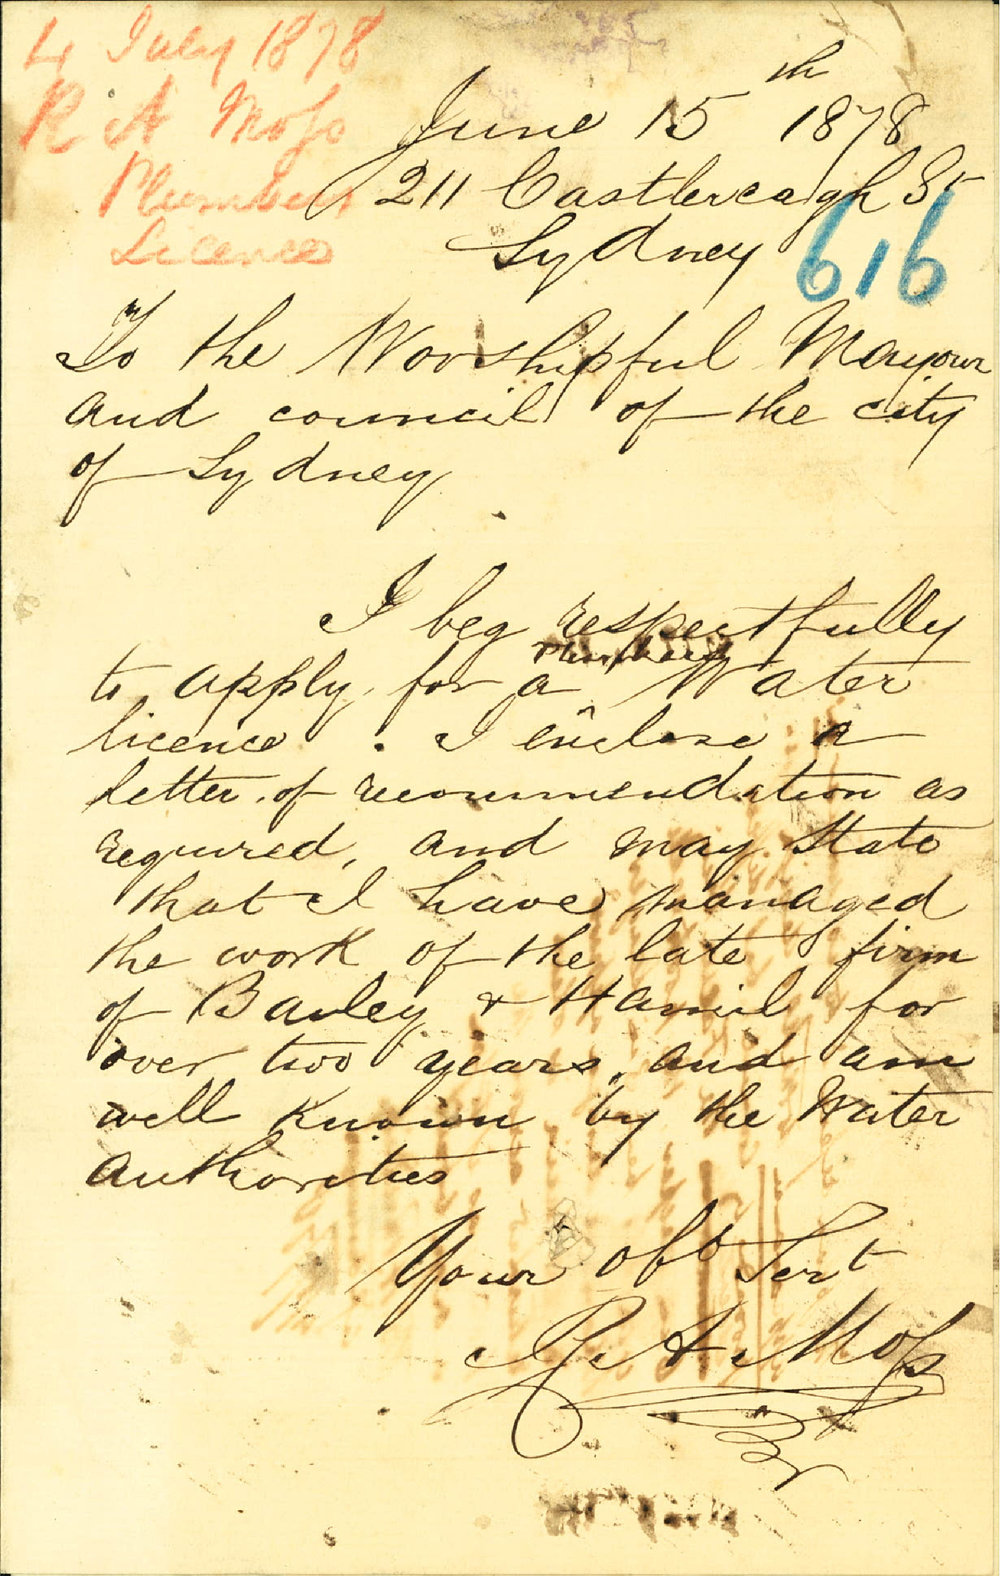 4 July 1878
R A Moss
Plumbers
Licence
June 15th 1878
211 Castlereagh St
Sydney
616
To the Worshipful Mayour
and council of the city
of Sydney
I beg respectfully
to apply for a Plumbers Water
licence. I enclose a
letter of recommendation as
required, and may state
that I have managed
the work of the late firm
of Bauley & Hamil for
over two years, and am
well known by the Water
authorities
Your obt Servt
R. A. Moss